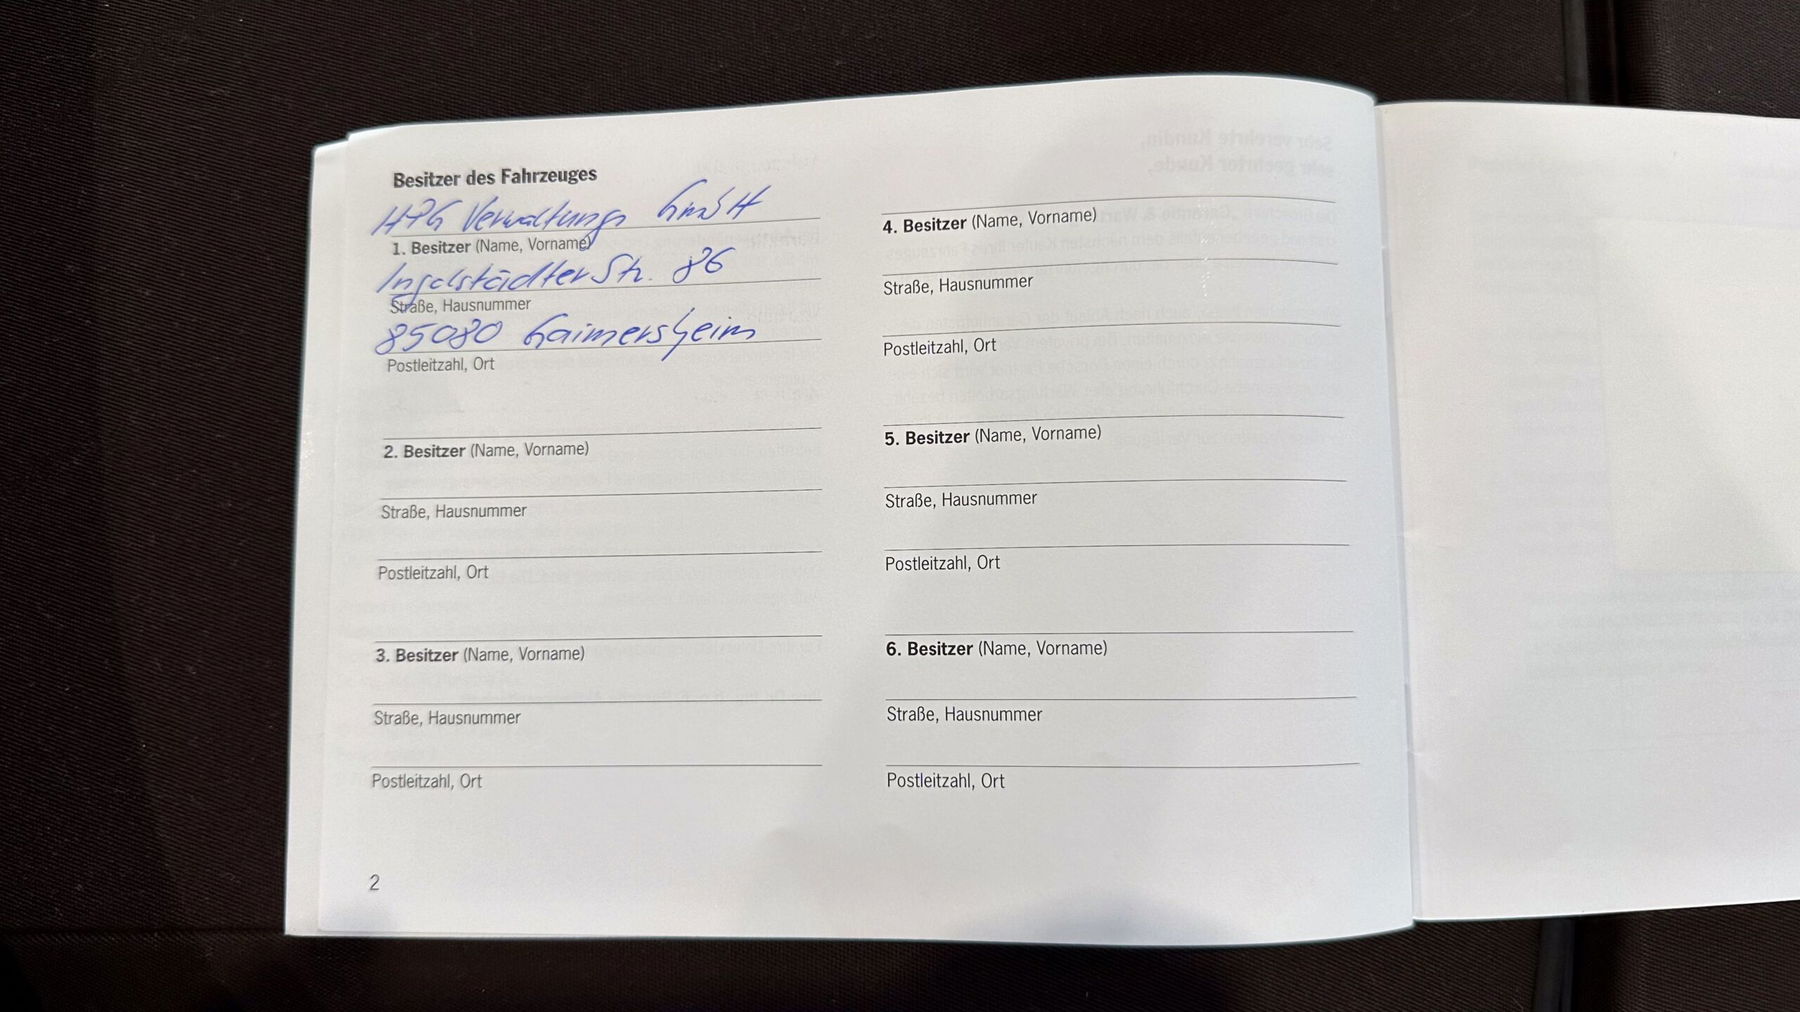 Besitzer des Fahrzeuges
HPG Verwaltungs GmbH
1. Besitzer (Name, Vorname)
Ingolstädter Str. 86
Straße, Hausnummer
85080 Gaimersheim
Postleitzahl, Ort
2. Besitzer (Name, Vorname)
Straße, Hausnummer
Postleitzahl, Ort
3. Besitzer (Name, Vorname)
Straße, Hausnummer
Postleitzahl, Ort
2
4. Besitzer (Name, Vorname)
Straße, Hausnummer
Postleitzahl, Ort
5. Besitzer (Name, Vorname)
Straße, Hausnummer
Postleitzahl, Ort
6. Besitzer (Name, Vorname)
Straße, Hausnummer
Postleitzahl, Ort